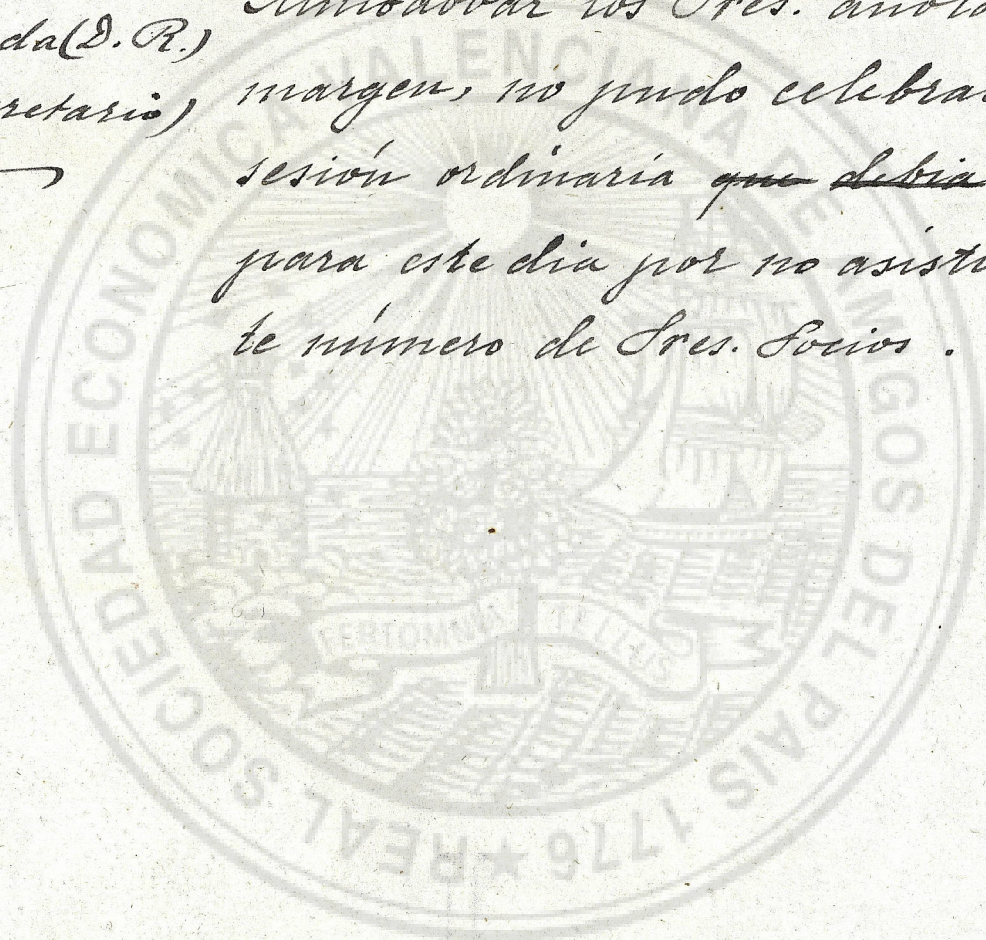 da (D. R.)
retario)
Almodóbar los Sres. anota
margen, no pudo celebrar
sesión ordinaria que debia
para este dia por no asisti
te número de Sres. Socios.
REAL SOCIEDAD ECONOMICA VALENCIANA DE AMIGOS DEL PAIS 1776
FERT OMNIA TELLUS